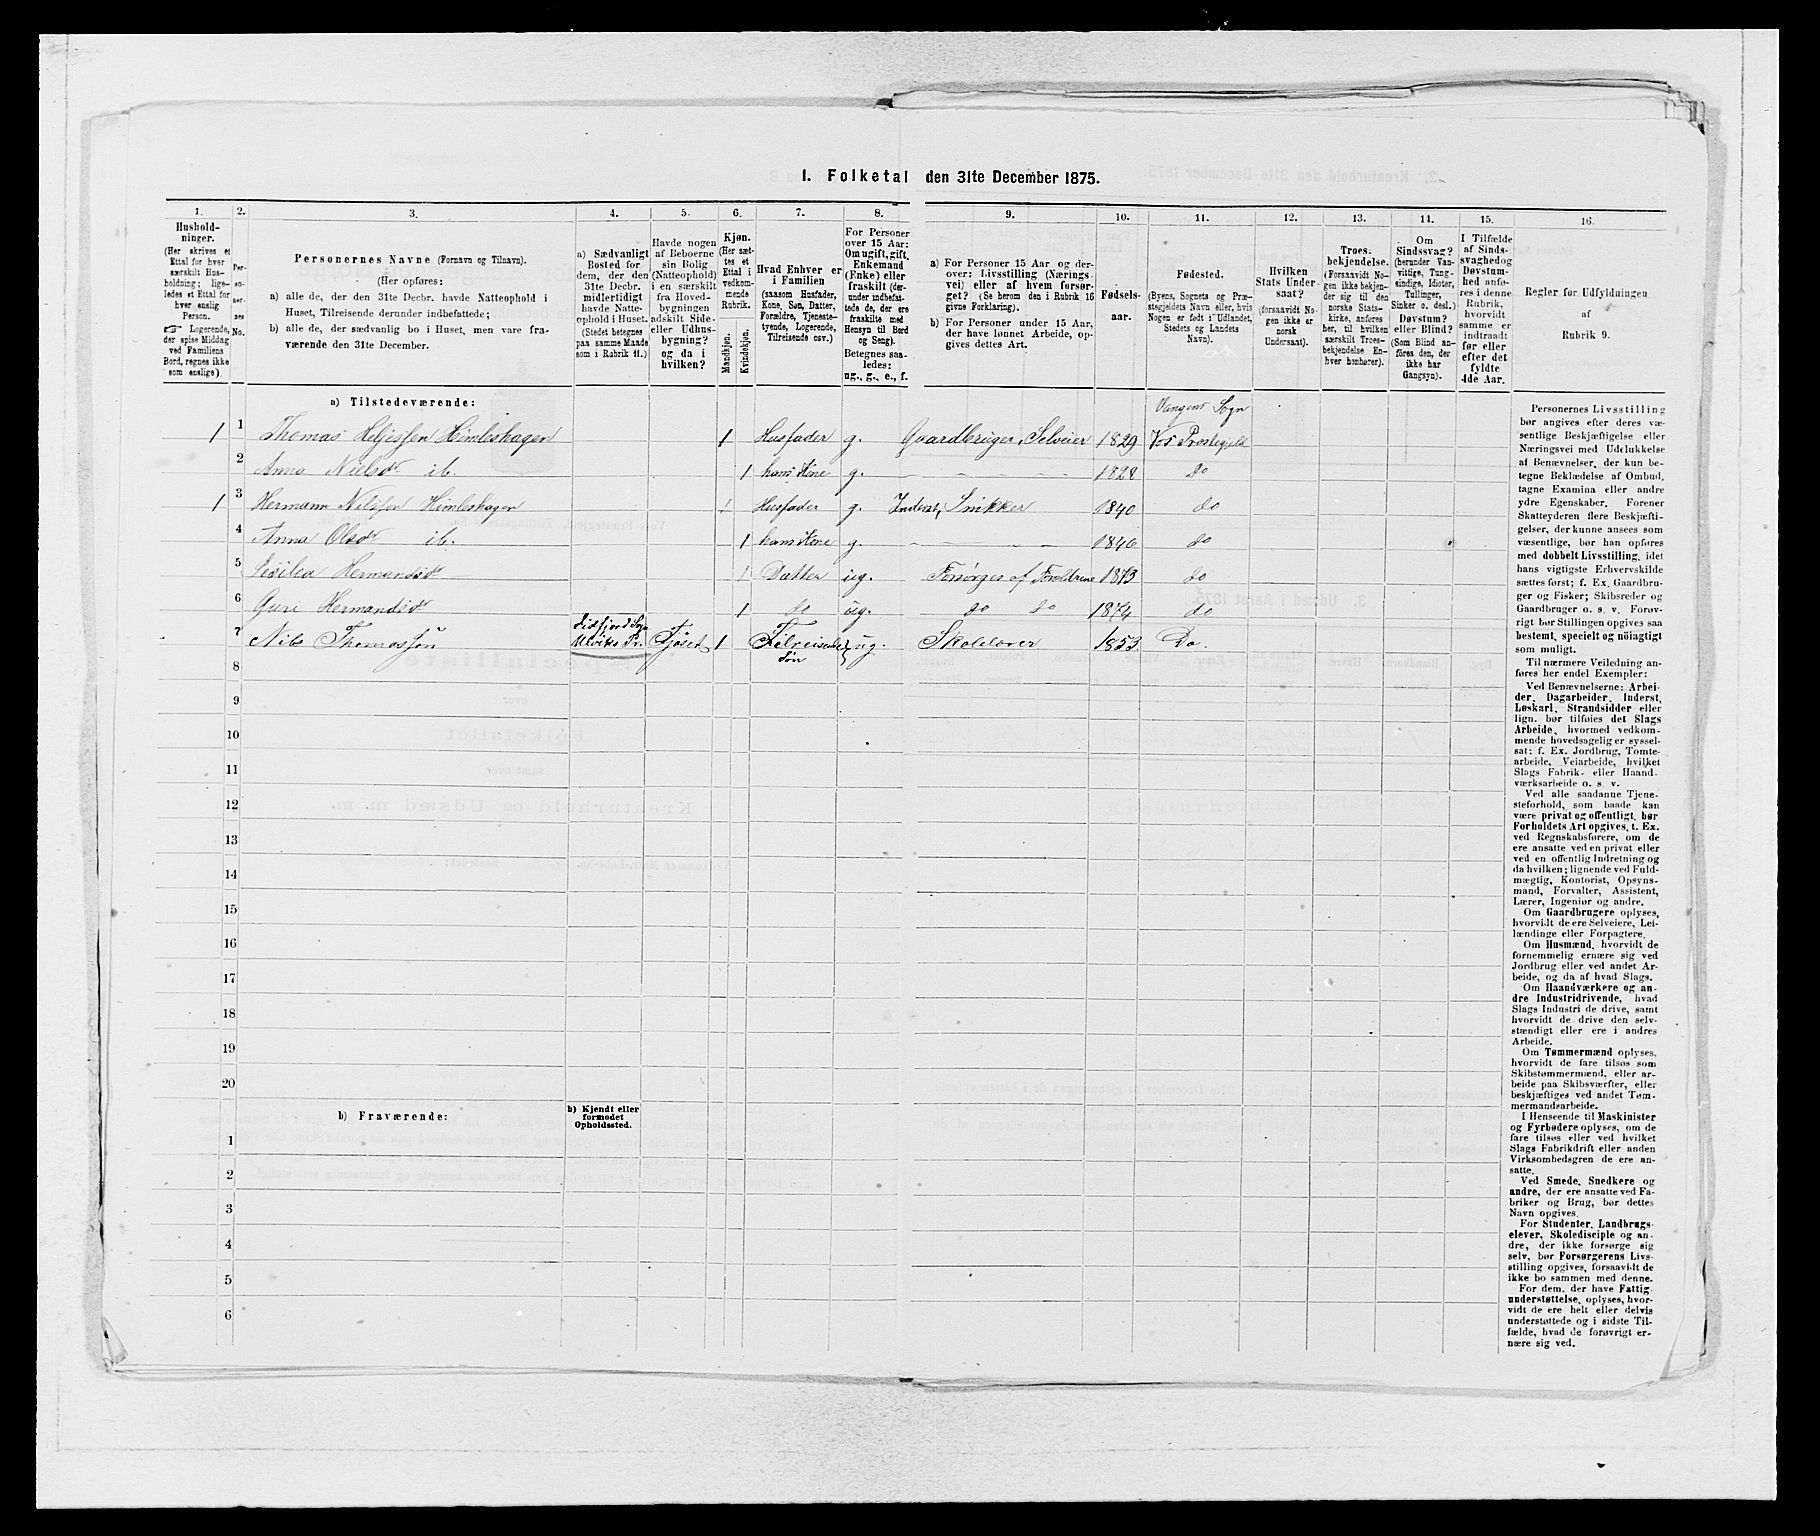 I. Folketal den 31te December 1875.
1. 2. 3. 4. 5. 6. 7. 8. 9. 10. 11. 12. 13. 14. 15. 16.
Hushold-
ninger.
(Her skrives et
Ettal for hver
særskilt Hus-
holdning; lige-
ledes et Ettal for
hver enslig
Person.
☞ Logerende,
der spise Middag
ved Familiens
Bord, regnes ikke
som enslige).
Per-
so-
ner-
nes
No.
Personernes Navne (Fornavn og Tilnavn).
(Her opføres:
a) alle de, der den 31te Decbr. havde Natteophold i
Huset, Tilreisende derunder indbefattede;
b) alle de, der sædvanlig bo i Huset, men vare fra-
værende den 31te December.
a) Sædvanligt
Bosted for
dem, der den
31te Decbr.
midlertidigt
havde Natte-
ophold i Huset.
(Stedet betegnes
paa samme Maade
som i Rubrik 11.)
Havde nogen
af Beboerne
sin Bolig
(Natteophold)
i en særskilt
fra Hoved-
bygningen
adskilt Side-
eller Udhus-
bygning?
og da i
hvilken?
Kjøn.
(Her sæt-
tes et
Ettal i
vedkom-
mende
Rubrik.
Mandkjøn.
Kvindekjøn.
Hvad Enhver er
i Familien
(saasom Husfader,
Kone, Søn, Datter,
Forældre, Tjeneste-
tyende, Logerende,
Tilreisende osv.)
For Personer
over 15 Aar:
Om ugift, gift,
Enkemand
(Enke) eller
fraskilt (der-
under indbefat-
tede de, der ere
fraskilte med
Hensyn til Bord
og Seng).
Betegnes saa-
ledes:
ug., g., e., f.
a) For Personer 15 Aar og der-
over: Livsstilling (Nærings-
vei) eller af hvem forsør-
get? (Se herom den i Rubrik 16
givne Forklaring).
b) For Personer under 15 Aar,
der have lønnet Arbeide, op-
gives dettes Art.
Fødsels-
aar.
Fødested.
(Byens, Sognets og Præ-
stegjeldets Navn eller, hvis
Nogen er født i Udlandet,
Stedets og Landets
Navn).
Hvilken
Stats Under-
saat?
(forsaavidt No-
gen ikke er
norsk
Undersaat).
Troes-
bekjendelse.
(Forsaavidt No-
gen ikke bekjen-
der sig til den
norske Stats-
kirke, anføres
her, til hvilken
særskilt Troes-
bekjendelse En-
hver henhører).
Om
Sindssvag?
(herunder Van-
vittige, Tung-
sindige, Idioter,
Tullinger,
Sinker o. desl.)
Døvstum?
eller Blind?
(Som Blind an-
føres den, der
ikke har
Gangsyn).
I Tilfælde
af Sinds-
svaghed og
Døvstum-
hed anfø-
res i denne
Rubrik,
hvorvidt
samme er
indtraadt
før eller
efter det
fyldte
4de Aar.
Regler for Udfyldningen
af
Rubrik 9.
a) Tilstedeværende:
Vangens Sogn
1 1 Thomas Heljessen Himleshagen 1 Husfader g. Gaardbruger, Selveier 1829 Vos Prestegjeld
2 Anna Nielsdr ib. 1 hans Kone g. 1828 do
1 3 Hermann Nilssen Himleshagen 1 Husfader g. Inderst, Snikker 1840 do
4 Anna Olsdr ib. 1 hans Kone g. 1846 do
5 Hermandsdr 1 Datter ug. Forsørges af Forældrene 1873 do
6 Guri Hermandsdr 1 do ug. do do 1874 do
Eidfjord Sogn
7 Nils Thomassøn Ulviks Pr. Fjøset 1 Tilreisende ug. Skolelærer 1853 Do.
Søn
8
9
10
11
12
13
14
15
16
17
18
19
20
b) Fraværende:
b) Kjendt eller
formodet
Opholdssted.
1
2
3
4
5
6
Personernes Livsstilling
bør angives efter deres væ-
sentlige Beskjæftigelse eller
Næringsvei med Udelukkelse
af Benævnelser, der kun be-
tegne Beklædelse af Ombud,
tagne Examina eller andre
ydre Egenskaber. Forener
Skatteyderen flere Beskjæfti-
gelser, der kunne ansees som
væsentlige, bør han opføres
med dobbelt Livsstilling, idet
hans vigtigste Erhvervskilde
sættes først; f. Ex. Gaardbru-
ger og Fisker; Skibsreder og
Gaardbruger o. s. v. Forøv-
rigt bør Stillingen opgives saa
bestemt, specielt og nøiagtigt
som muligt.
Til nærmere Veiledning an-
føres her endel Exempler:
Ved Benævnelserne: Arbei-
der, Dagarbeider, Inderst,
Løskarl, Strandsidder eller
lign. bør tilføies det Slags
Arbeide, hvormed vedkom-
mende hovedsagelig er syssel-
sat; f. Ex. Jordbrug, Tomte-
arbeide, Veiarbeide, hvilket
Slags Fabrik- eller Haand-
værksarbeide o. s. v.
Ved alle saadanne Tjene-
steforhold, som baade kan
være privat og offentligt, bør
Forholdets Art opgives, t. Ex.
ved Regnskabsførere, om de
ere ansatte ved en privat eller
ved en offentlig Indretning og
da hvilken; lignende ved Fuld-
mægtig, Kontorist, Opsyns-
mand, Forvalter, Assistent,
Lærer, Ingeniør og andre.
Om Gaardbrugere oplyses,
hvorvidt de ere Selveiere, Lei-
lændinge eller Forpagtere.
Om Husmænd, hvorvidt de
fornemmelig ernære sig ved
Jordbrug eller ved andet Ar-
beide, og da af hvad Slags.
Om Haandværkere og an-
dre Industridrivende, hvad
Slags Industri de drive, samt
hvorvidt de drive den selv-
stændigt eller ere i andres
Arbeide.
Om Tømmermænd oplyses,
hvorvidt de fare tilsøs som
Skibstømmermænd, eller ar-
beide paa Skibsværfter, eller
beskjæftiges ved andet Tøm-
mermandsarbeide.
I Henseende til Maskinister
og Fyrbødere oplyses, om de
fare tilsøs eller ved hvilket
Slags Fabrikdrift eller anden
Virksomhedsgren de ere an-
satte.
Ved Smede, Snedkere og
andre, der ere ansatte ved Fa-
briker og Brug, bør dettes
Navn opgives.
For Studenter, Landbrugs-
elever, Skoledisciple og an-
dre, der ikke forsørge sig
selv, bør Forsørgerens Livs-
stilling opgives, forsaavidt de
ikke bo sammen med denne.
For dem, der have Fattig-
understøttelse, oplyses, hvor-
vidt de ere helt eller delvis
understøttede og i sidste Til-
fælde, hvad de forøvrigt er-
nære sig ved.